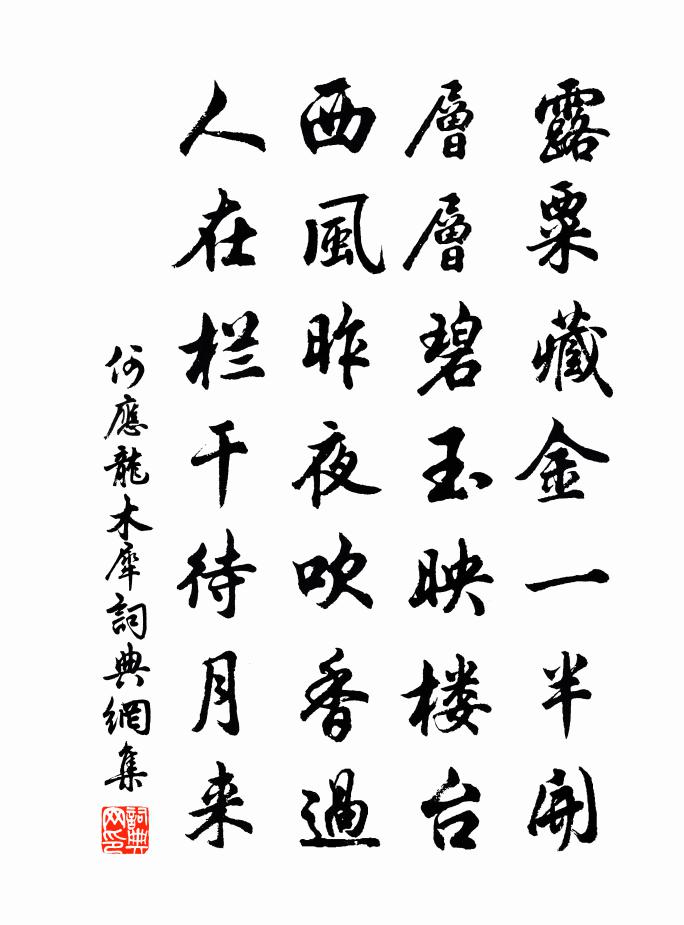 露粟藏金一半開
層層碧玉映楼台
西風昨夜吹香過
人在栏干待月来
何應龍木犀詞典網集
詞典网印